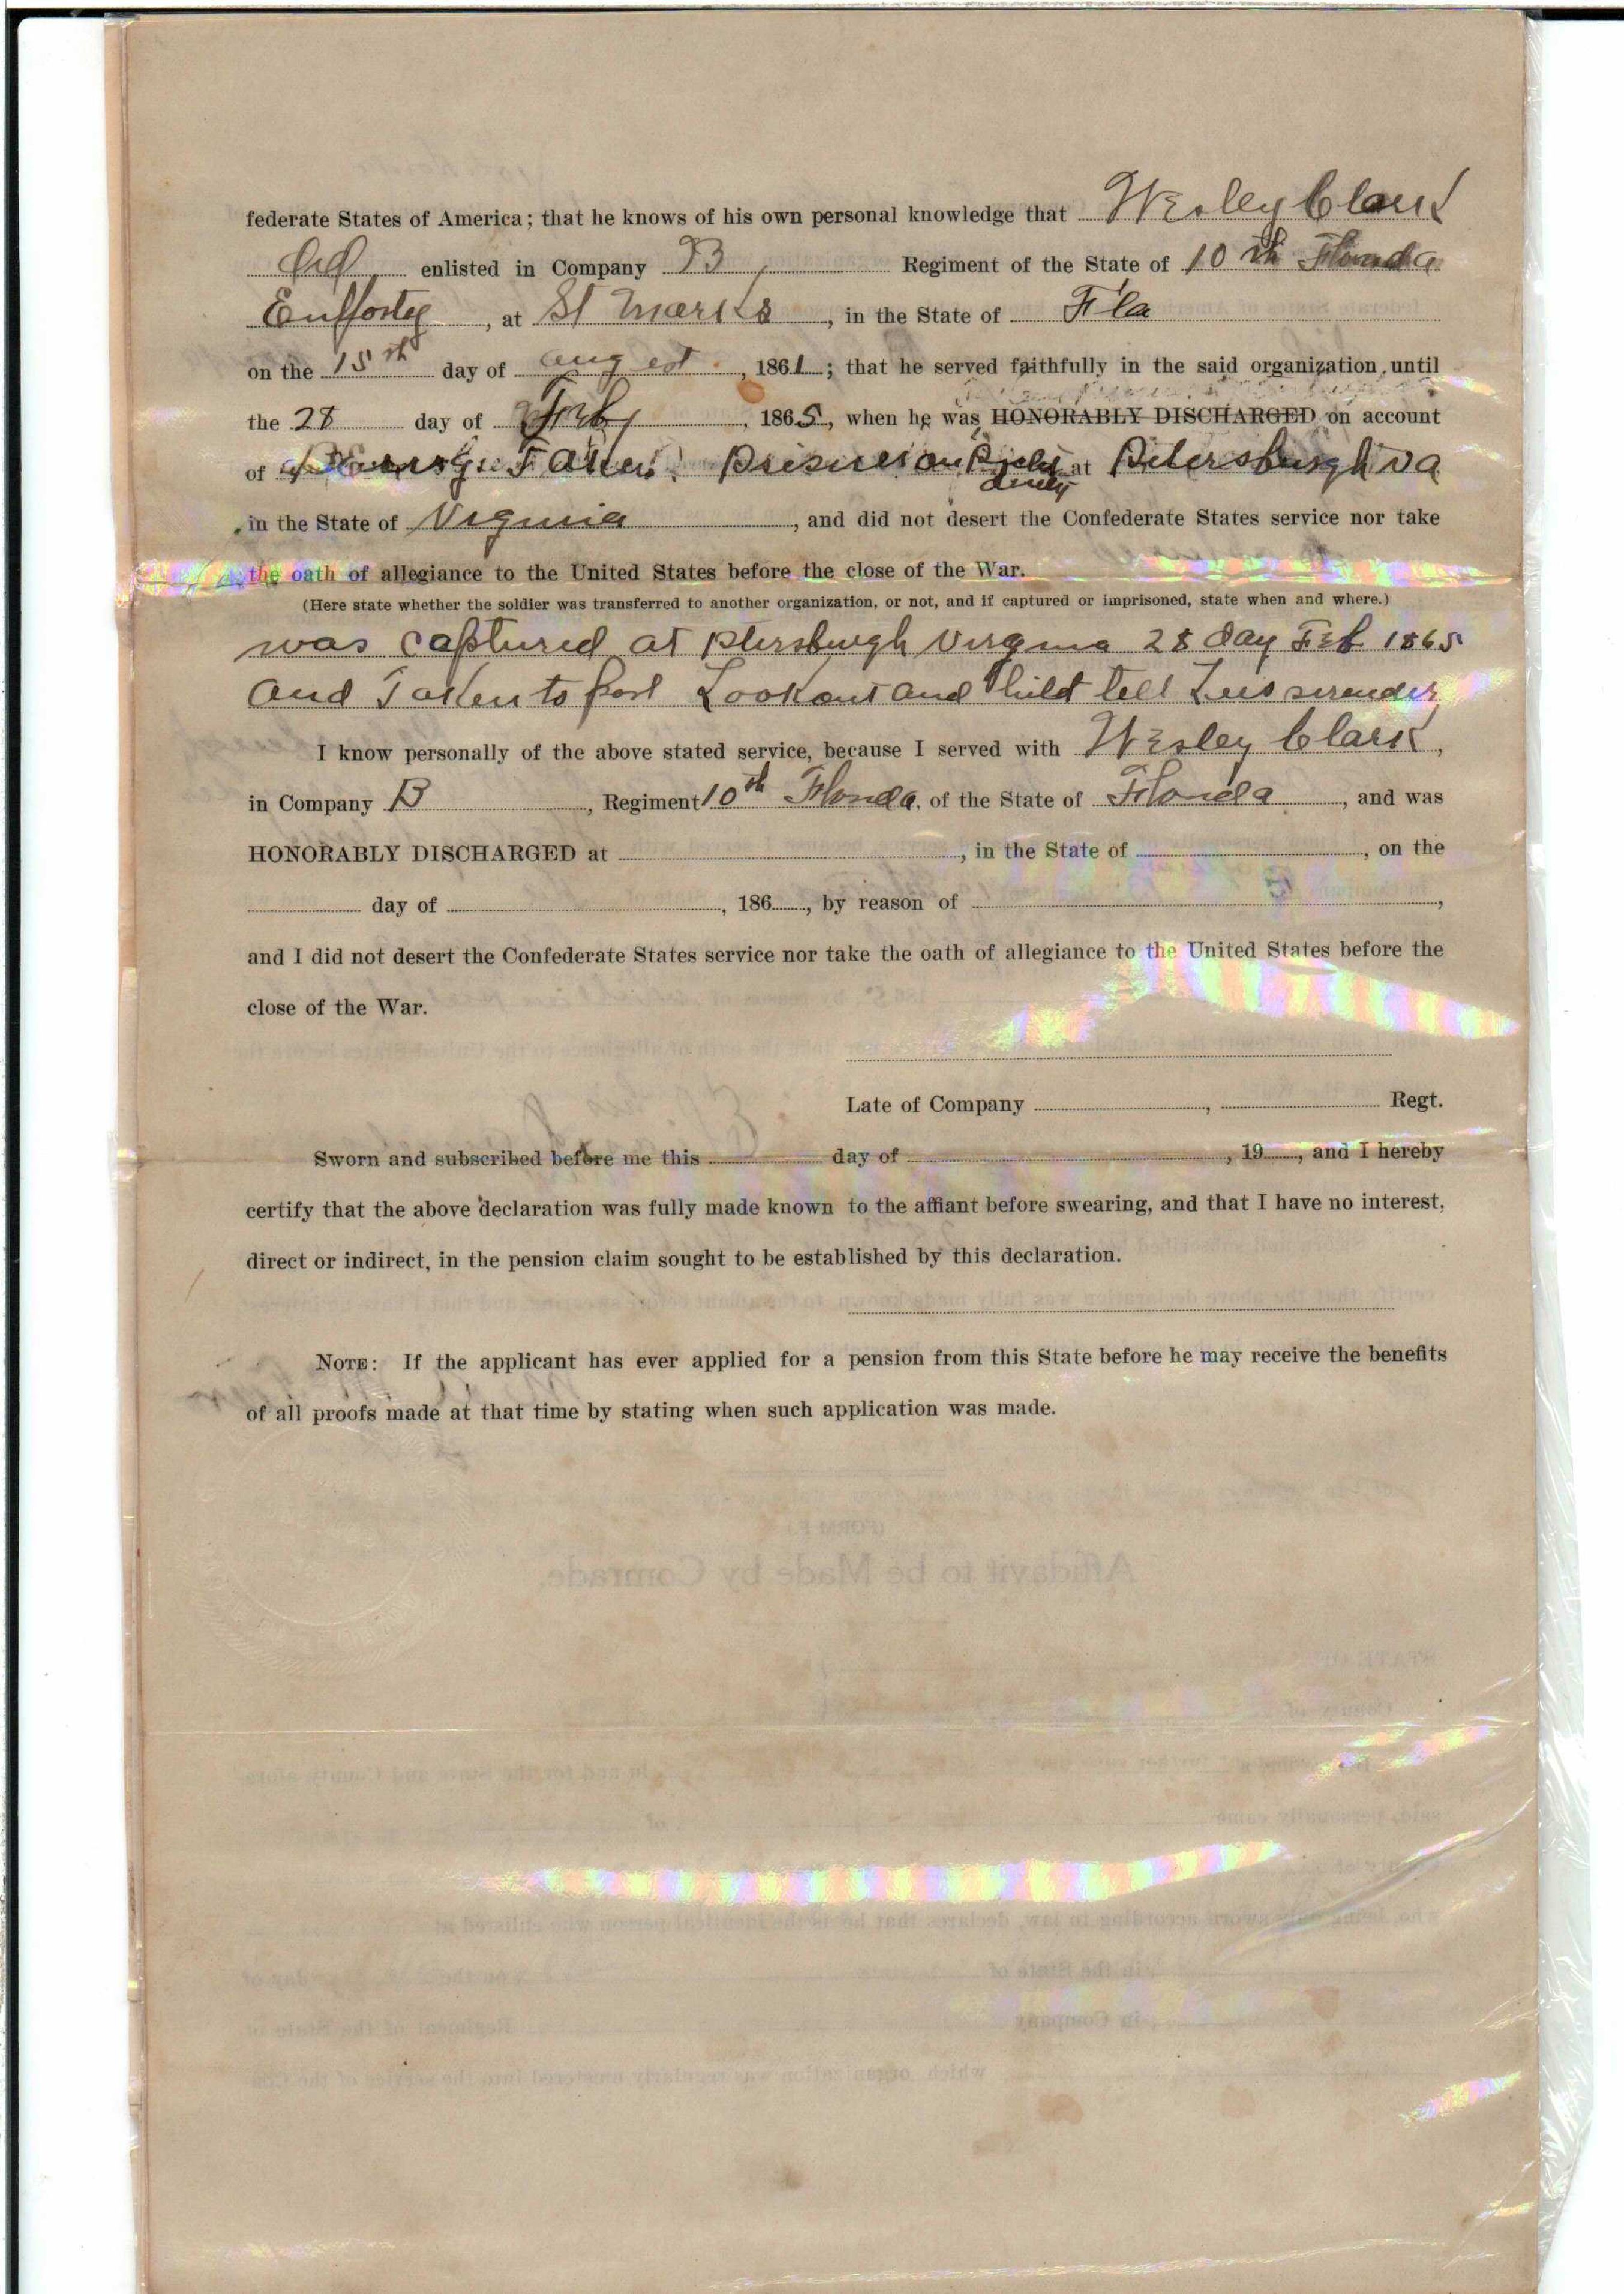 federate States of America; that he knows of his own personal knowledge that Wesley Clark
did enlisted in Company B, Regiment of the State of 10th Florida
Enffortry, at St Marks, in the State of Fla
on the 15th day of augest, 1861; that he served faithfully in the said organization, until
the 28 day of Feb, 1865, when he was HONORABLY DISCHARGED on account
of Taken Prisner on at Petersburgh va
duety
in the State of Virginia, and did not desert the Confederate States service nor take
the oath of allegiance to the United States before the close of the War.
(Here state whether the soldier was transferred to another organization, or not, and if captured or imprisoned, state when and where.)
was captured at ptersburgh Virgina 28 day Feb 1865
and Taken to Lookout and hild tell Lees surender
I know personally of the above stated service, because I served with Wesley Clark,
in Company B, Regiment 10th Florida, of the State of Florida, and was
HONORABLY DISCHARGED at, in the State of, on the
day of, 186, by reason of,
and I did not desert the Confederate States service nor take the oath of allegiance to the United States before the
close of the War.
Late of Company, Regt.
Sworn and subscribed before me this day of, 19, and I hereby
certify that the above declaration was fully made known to the affiant before swearing, and that I have no interest,
direct or indirect, in the pension claim sought to be established by this declaration.
NOTE: If the applicant has ever applied for a pension from this State before he may receive the benefits
of all proofs made at that time by stating when such application was made.